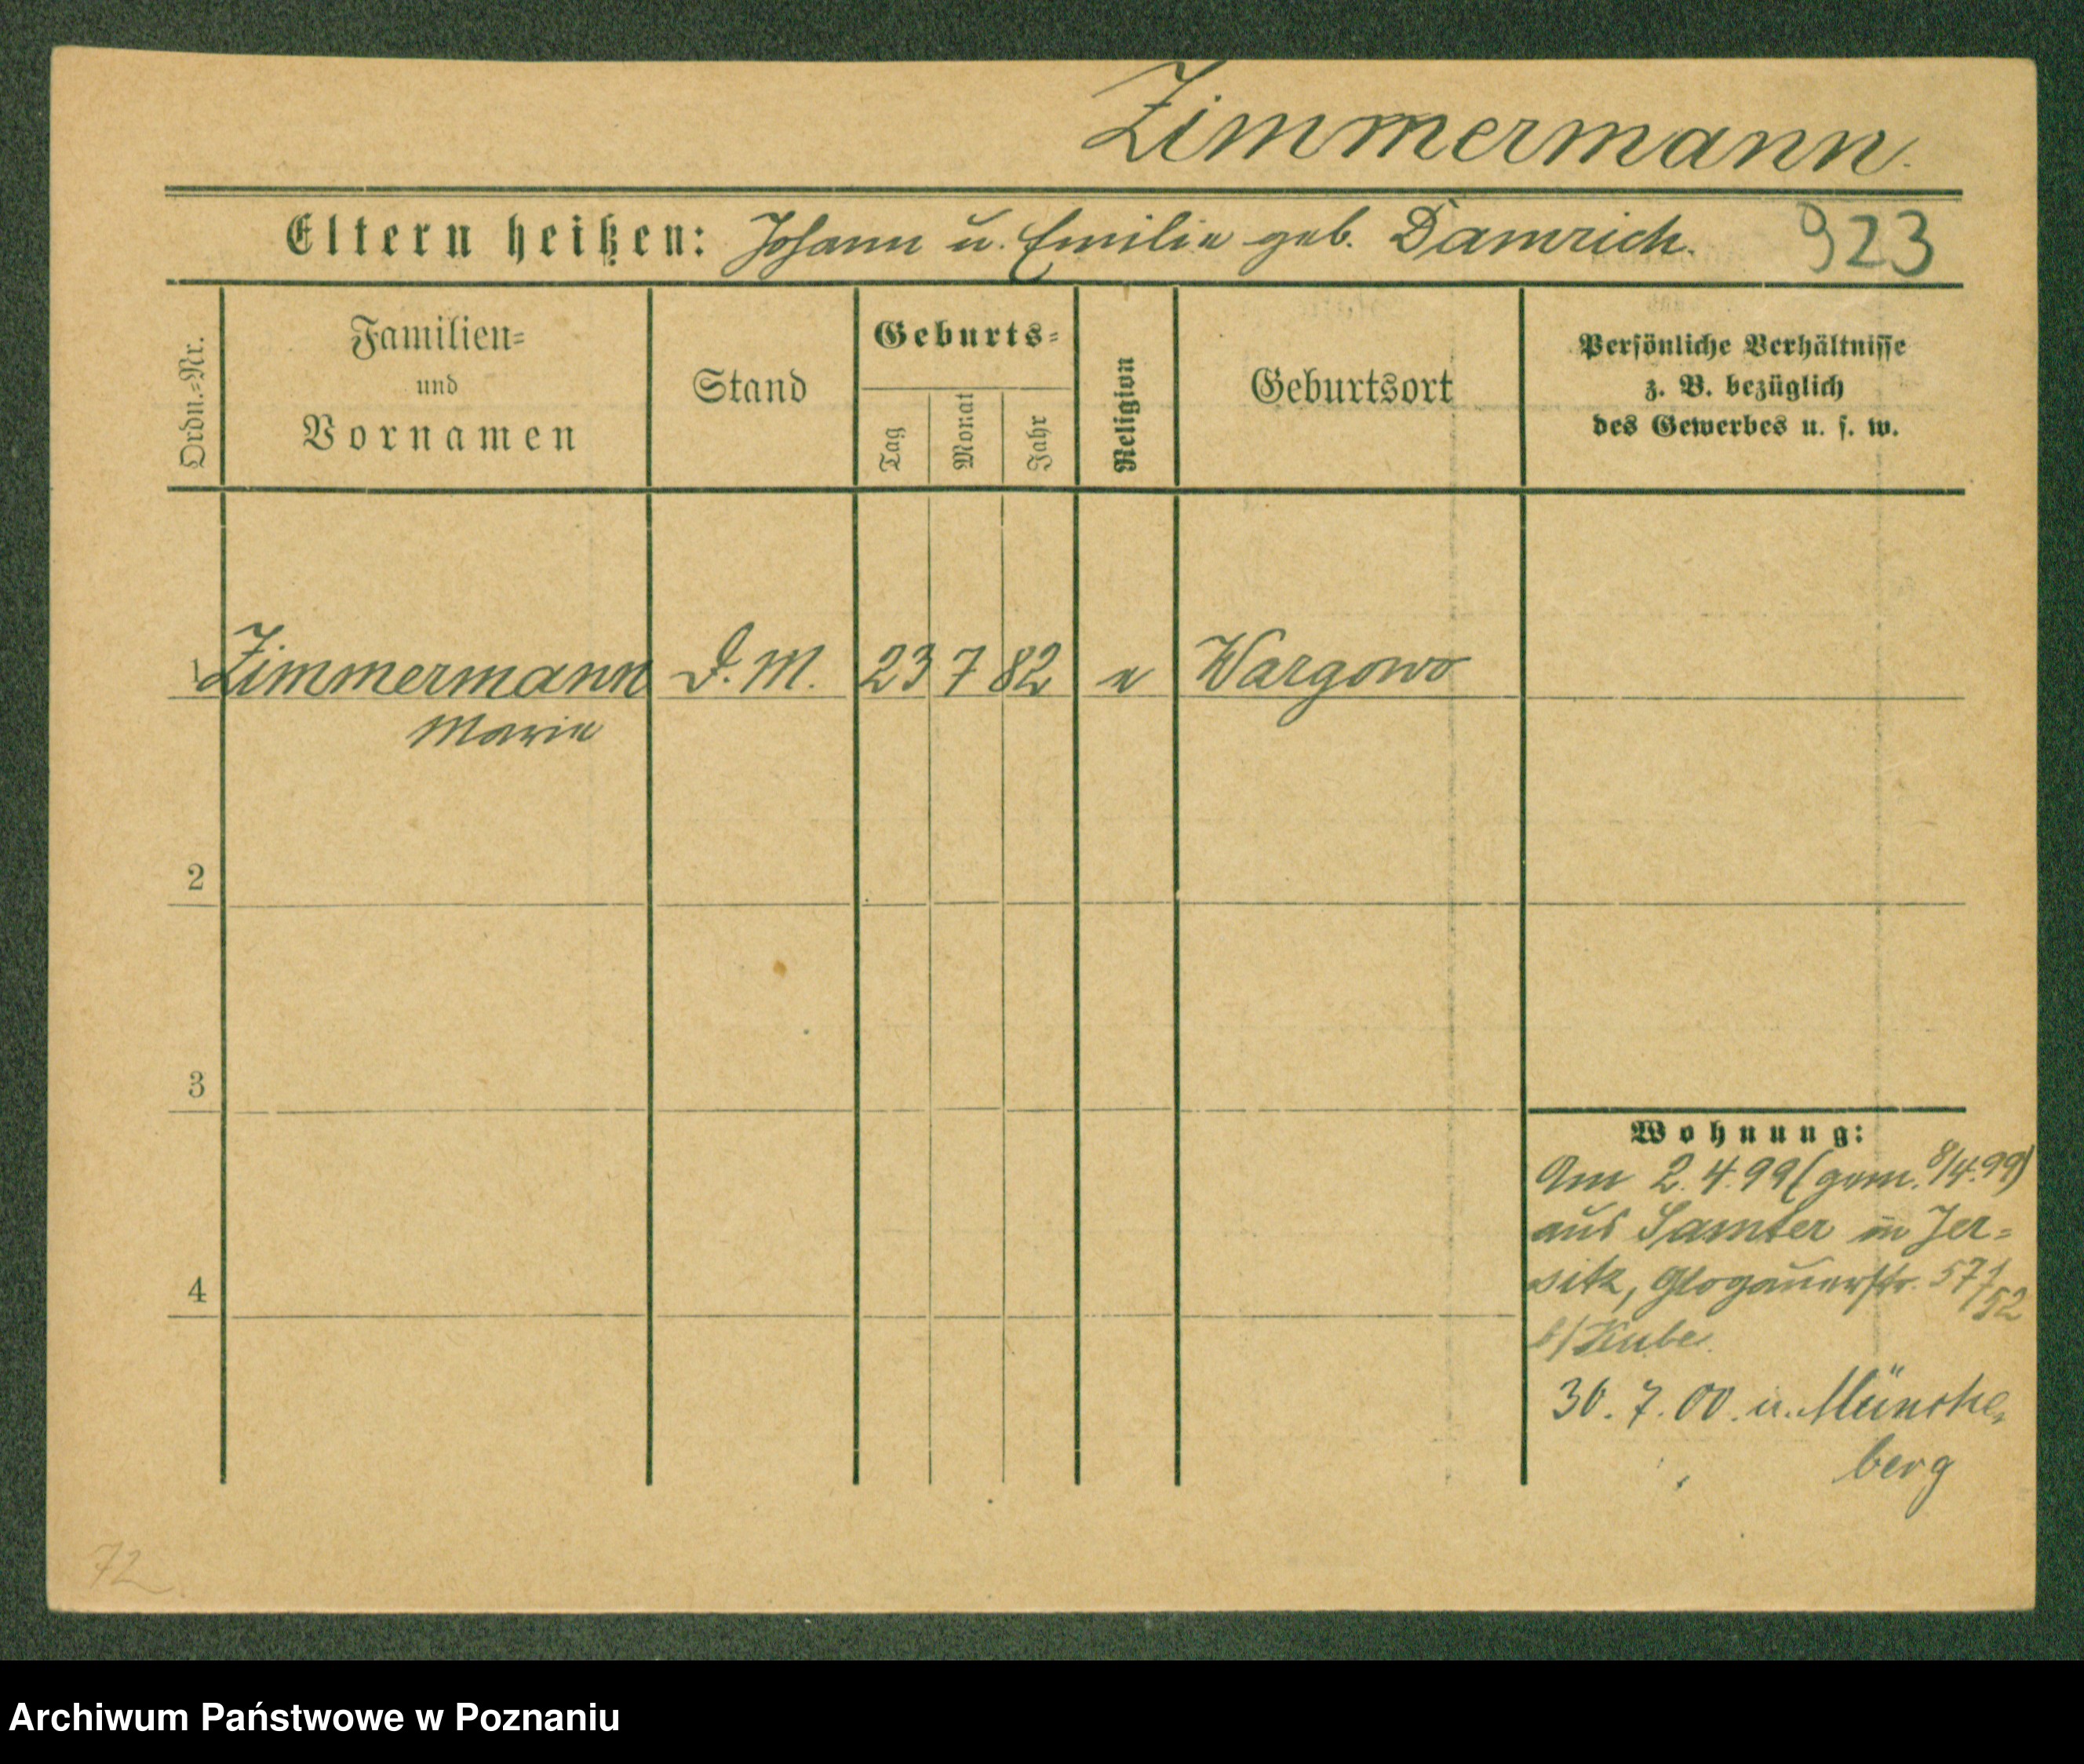 Zimmermann.
Eltern heißen: Johann u. Emilie geb. Damrich. 923
Ordn.=Nr.
Familien=
und
Vornamen
Stand
Geburts=
Tag
Monat
Jahr
Religion
Geburtsort
Persönliche Verhältnisse
z. B. bezüglich
des Gewerbes u. s. w.
1 Zimmermann D. M. 23 7 82 e Wargowo
Marie
2
3
4
Wohnung:
Am 2.4.99 (gem. 8/4.99)
aus Samter in Jer=
sitz, Glogauerstr. 57/52
b/ Kube.
30. 7. 00. n. Münche
berg
72
Archiwum Państwowe w Poznaniu